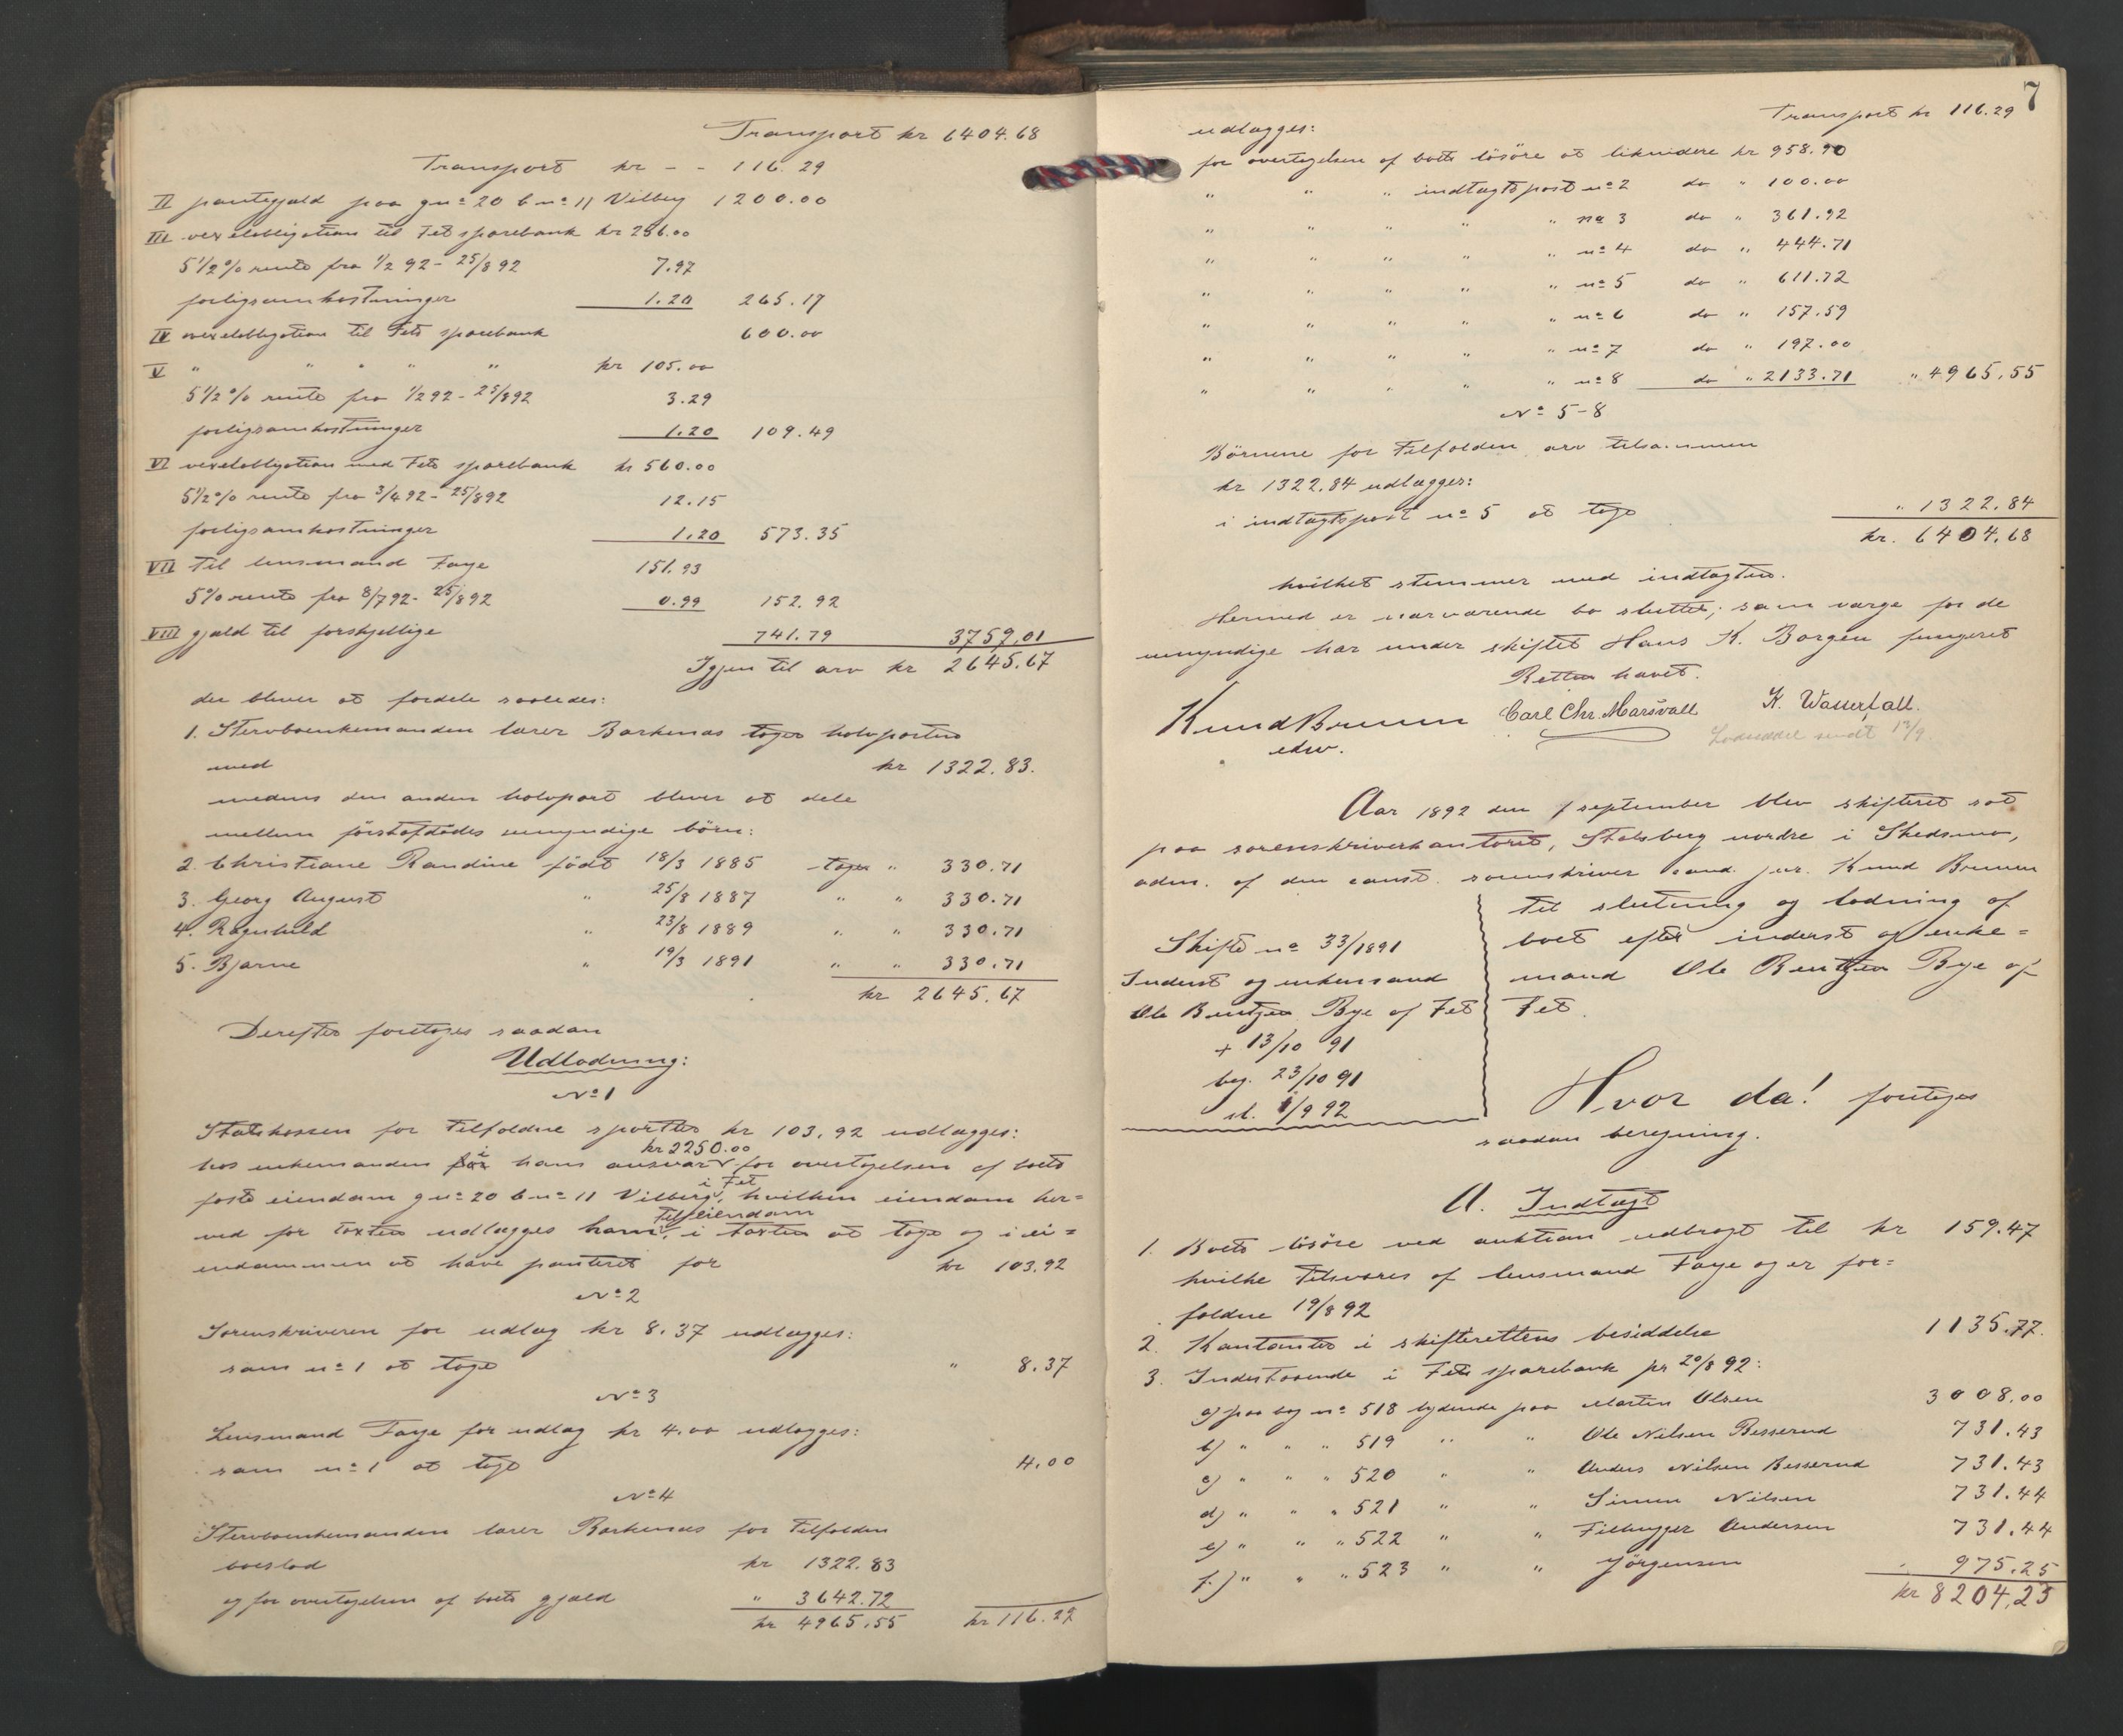 Transport kr 6404.68
Transport kr - - 116.29
II pantegjæld paa gno 20 bno 11 Vilberg 1200.00
III vexelobligation til Fet sparebank kr 256.00
5 1/2 % rente fra 1/2 92 - 25/8 92 7.97
forligsomkostninger 1.20 265.17
IV vexelobligation til Fets sparebank 600.00
V " " " " " kr 105.00
5 1/2 % rente fra 1/2 92 - 25/8 92 3.29
forligsomkostninger 1.20 109.49
VI vexelobligation med Fets sparebank kr 560.00
5 1/2 % rente fra 3/4 92 - 25/8 92 12.15
forligsomkostninger 1.20 573.35
VII til lensmand Faye 151.93
5% rente fra 8/7 92 - 25/8 92 0.99 152.92
VIII gjæld til forskjellige 741.79 3759.01
Igjen til arv kr 2645.67
der bliver at fordele saaledes:
1. Stervboenkemanden Barkenæs tager halvparten
med kr 1322.83.
medens den anden halvpart bliver at dele
mellem førstafdødes umyndige børn:
2. Christiane Randine født 18/3 1885 tager " 330.71
3. Georg August " 25/8 1887 " " 330.71
4. Ragnhild " 23/8 1889 " " 330.71
5. Bjarne " 19/3 1891 " " 330.71
kr 2645.67
Derefter foretages saadan
Udlodning:
No 1
Statskassen for tilfaldne sportler kr 103.92 udlægges:
hos enkemanden i hans ansvar kr 2250.00 for overtagelsen af boets
faste eiendom gno 20 bno 11 Vilberg i Fet, hvilken eiendom her=
ved for taxten udlægges ham til eiendom, i taxten at tage og i ei=
endommen at have panteret for kr 103.92
No 2
Sorenskriveren for udlæg kr 8.37 udlægges:
som no 1 at tage " 8.37
No 3
Lensmand Faye for udlæg kr 4.00 udlægges:
som no 1 at tage 4.00
No 4
Stervboenkemanden Barkenæs for tilfalden
boeslod kr 1322.83
og for overtagelsen af boets gjæld " 3642.72
kr 4965.55 kr 116.29
7
Transport kr 116.29
udlægges:
for overtagelsen af boets løsøre at likvidere kr 958.90
" " " indtægtspost no 2 do " 100.00
" " " " " no 3 do " 361.92
" " " " " no 4 do " 444.71
" " " " " no 5 do " 611.72
" " " " " no 6 do " 157.59
" " " " " no 7 do " 197.00
" " " " " no 8 do " 2133.71 " 4965.55
No 5-8
Børnene for tilfalden arv tilsammen
kr 1322.84 udlægges:
i indtægtspost no 5 at tage " 1322.84
kr. 6404.68
hvilket stemmer med indtægten.
Hermed er nærværende bo sluttet; som værge for de
umyndige har under skiftet Hans K. Borgen fungeret
Retten hævet.
Knud Bruun Carl Chr. Marsvall K. Wasserfall.
edw.
Lodseddel sendt 13/9.
Aar 1892 den 1 september blev skifteret sat
paa sorenskriverkontoret, Stalsberg nordre i Skedsmo,
adm. af den const. sorenskriver cand. jur. Knud Bruun
til slutning og lodning af
boet efter inderst og enke=
mand Ole Bentzen Bye af
Fet.
Skifte no 33/1891
Inderst og enkemand
Ole Bentzen Bye af Fet
+ 13/10 91
beg. 23/10 91
sl. 1/9 92
Hvor da! foretages
saadan beregning.
A. Indtægt
1. Boets løsøre ved auktion udbragt til kr 159.47
hvilke tilsvares af lensmand Faye og er for=
faldne 19/8 92
2. Kontanter i skifterettens besiddelse 1135.77.
3. Indestaaende i Fets sparebank pr 20/8 92:
a) paa bog no 518 lydende paa Martin Olsen 3008.00
b) " " " 519 " " Ole Nilsen Besserud 731.43
c) " " " 520 " Anders Nilsen Besserud 731.43
d) " " " 521 " " Simen Nilsen 731.44
e) " " " 522 " " Andersen 731.44
f.) " " " 523 " " Jørgensen 975.25
kr 8204.23